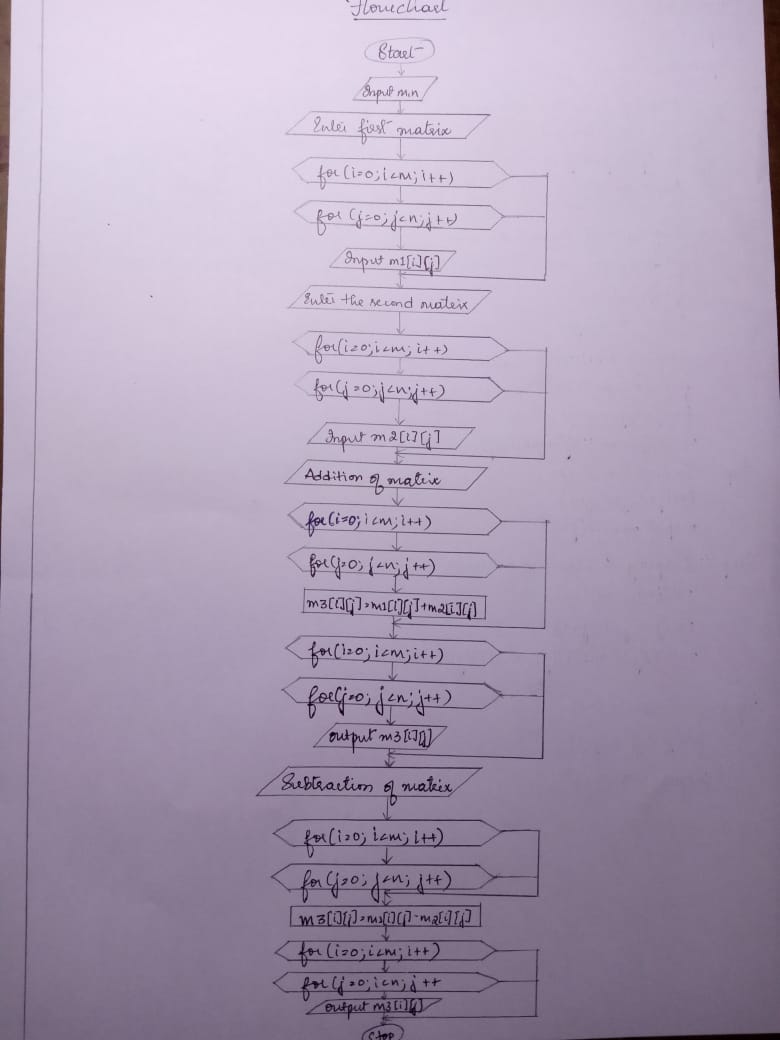 Flowchart
Start
Input m,n
Enter first matrix
for(i=0;i<m;i++)
for(j=0;j<n;j++)
Input m1[i][j]
Enter the second matrix
for(i=0;i<m;i++)
for(j=0;j<n;j++)
Input m2[i][j]
Addition of matrix
for(i=0;i<m;i++)
for(j=0;j<n;j++)
m3[i][j]=m1[i][j]+m2[i][j]
for(i=0;i<m;i++)
for(j=0;j<n;j++)
output m3[i][j]
Subtraction of matrix
for(i=0;i<m;i++)
for(j=0;j<n;j++)
m3[i][j]=m1[i][j]-m2[i][j]
for(i=0;i<m;i++)
for(j=0;i<n;j++
output m3[i][j]
Stop